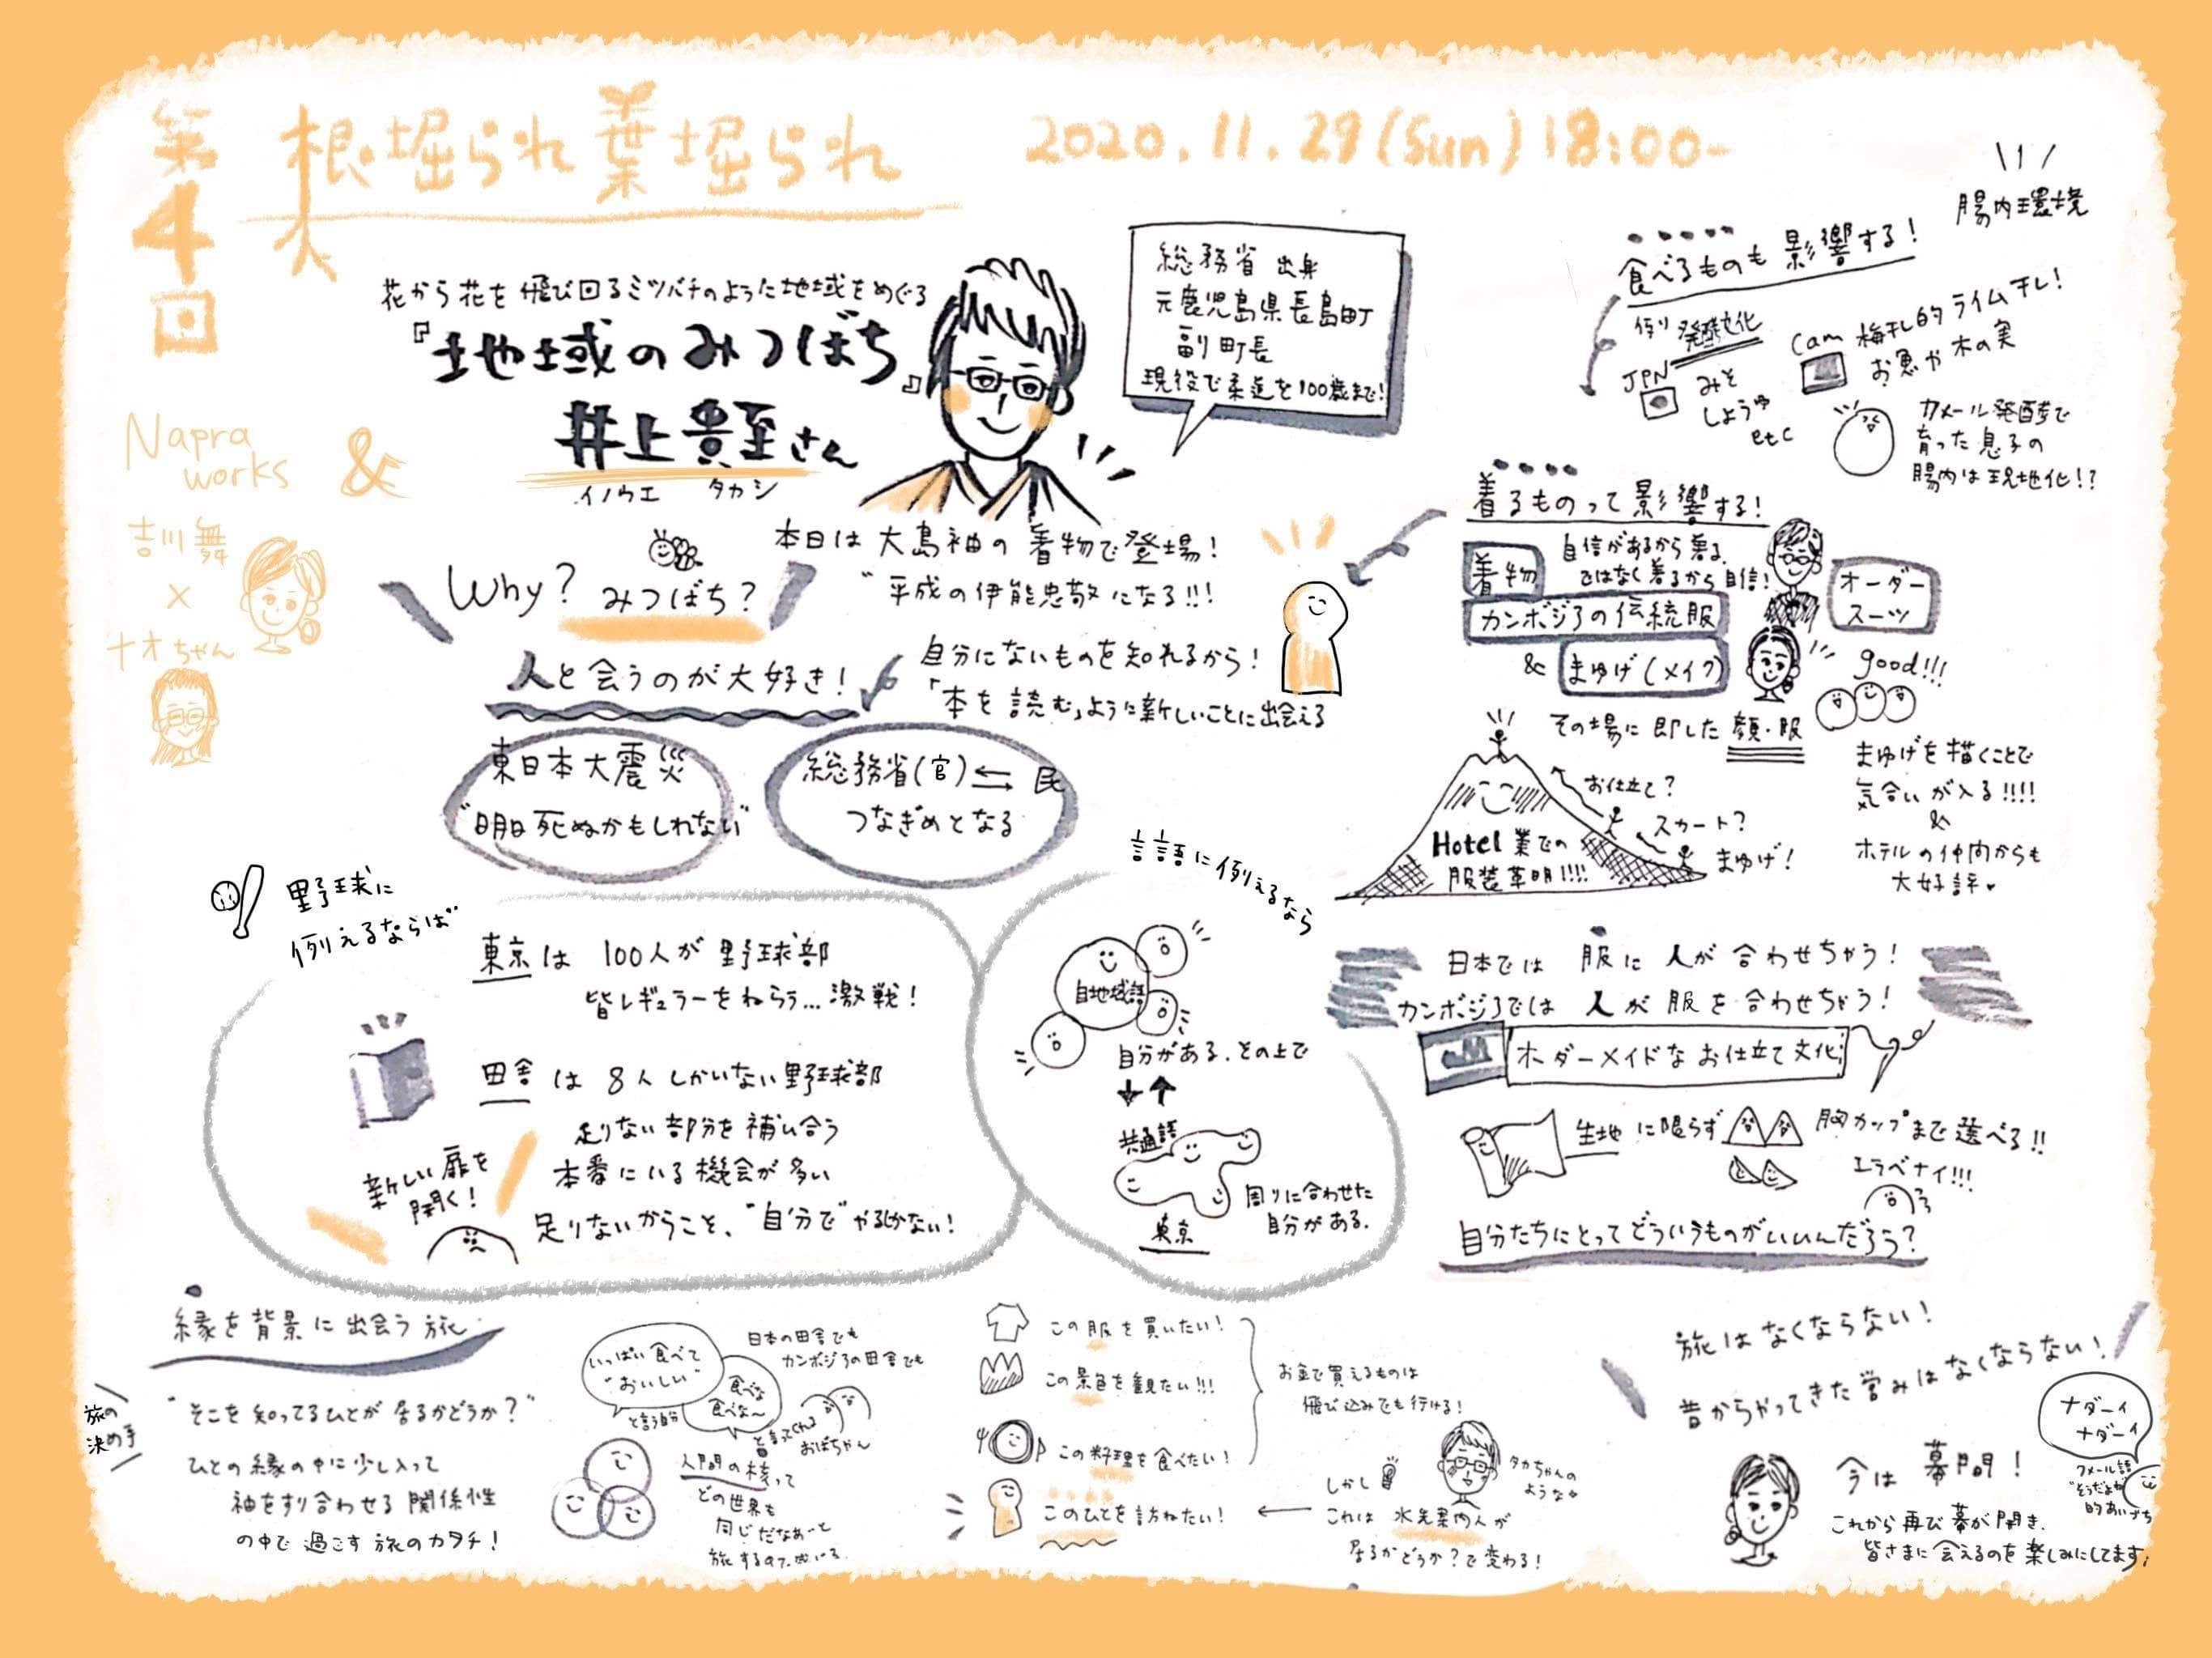 第4回
根堀られ葉堀られ
2020.11.29(Sun)18:00-
Napra
works
&
吉川舞
×
ナオちゃん
花から花を飛び回るミツバチのような地域をめぐる
『地域のみつばち』
井上貴至さん
イノウエ タカシ
総務省 出身
元鹿児島県長島町
副町長
現役で柔道を100歳まで!
本日は大島袖の着物で登場!
"平成の伊能忠敬になる!!!
Why? みつばち?
人と会うのが大好き!
自分にないものを知れるから!
「本を読む」ように新しいことに出会える
東日本大震災
"明日死ぬかもしれない"
総務省(官)⇆民
つなぎめとなる
野球に
例えるならば
東京は 100人が野球部
皆レギュラーをねらう…激戦!
田舎は 8人しかいない野球部
足りない部分を補い合う
本番にいる機会が多い
足りないからこそ、"自分で"やるしかない!
新しい扉を
開く!
言語に例えるなら
自地域語
自分がある.その上で
↓↑
共通語
東京
周りに合わせた
自分がある.
腸内環境
食べるものも影響する!
例)発酵文化
JPN
みそ
しょうゆ
etc
Cam 梅干し的ライム干し!
お魚や木の実
クメール発酵で
育った息子の
腸内は現地化!?
着るものって影響する!
着物
自信があるから着る.
ではなく着るから自信!
オーダー
スーツ
カンボジアの伝統服
& まゆげ(メイク)
good!!!
その場に即した顔・服
まゆげを描くことで
気合いが入る!!!!
&
ホテルの仲間からも
大好評♥
お仕立て?
スカート?
まゆげ!
Hotel業での
服装革命!!!!
日本では 服に人が合わせちゃう!
カンボジアでは 人が服を合わせちゃう!
オーダーメイドなお仕立て文化
生地に限らず 胸カップまで選べる!!
エラベナイ!!!
自分たちにとってどういうものがいいんだろう?
縁を背景に出会う旅
旅の
決め手
"そこを知ってるひとが居るかどうか?"
ひとの縁の中に少し入って
袖をすり合わせる関係性
の中で過ごす旅のカタチ!
いっぱい食べて
"おいしい"
と言う自分
食べな
食べな〜
と言ってくれる
おばちゃん
日本の田舎でも
カンボジアの田舎でも
人間の核って
どの世界も
同じだなあーと
旅するので感じる.
この服を買いたい!
この景色を観たい!!!
この料理を食べたい!
このひとを訪ねたい!
お金で買えるものは
飛び込みでも行ける!
しかし
これは 水先案内人が
居るかどうか?で変わる!
タカちゃんの
ような
旅はなくならない!
昔からやってきた営みはなくならない!
今は 幕間!
これから再び幕が開き、
皆さまに会えるのを楽しみにしてます!
ナダーイ
ナダーイ
クメール語
"そうだよね"
的あいづち